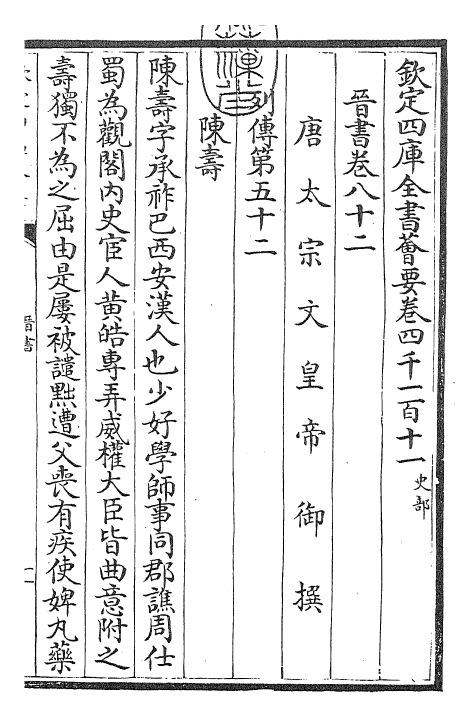 欽定四庫全書薈要卷四千一百十一史部
晉書卷八十二
唐太宗文皇帝御撰
列傳第五十二
陳壽
陳壽字承祚巴西安漢人也少好學師事同郡譙周仕
蜀為觀閣內史宦人黃皓專弄威權大臣皆曲意附之
壽獨不為之屈由是屢被譴黜遭父喪有疾使婢丸藥
晉書